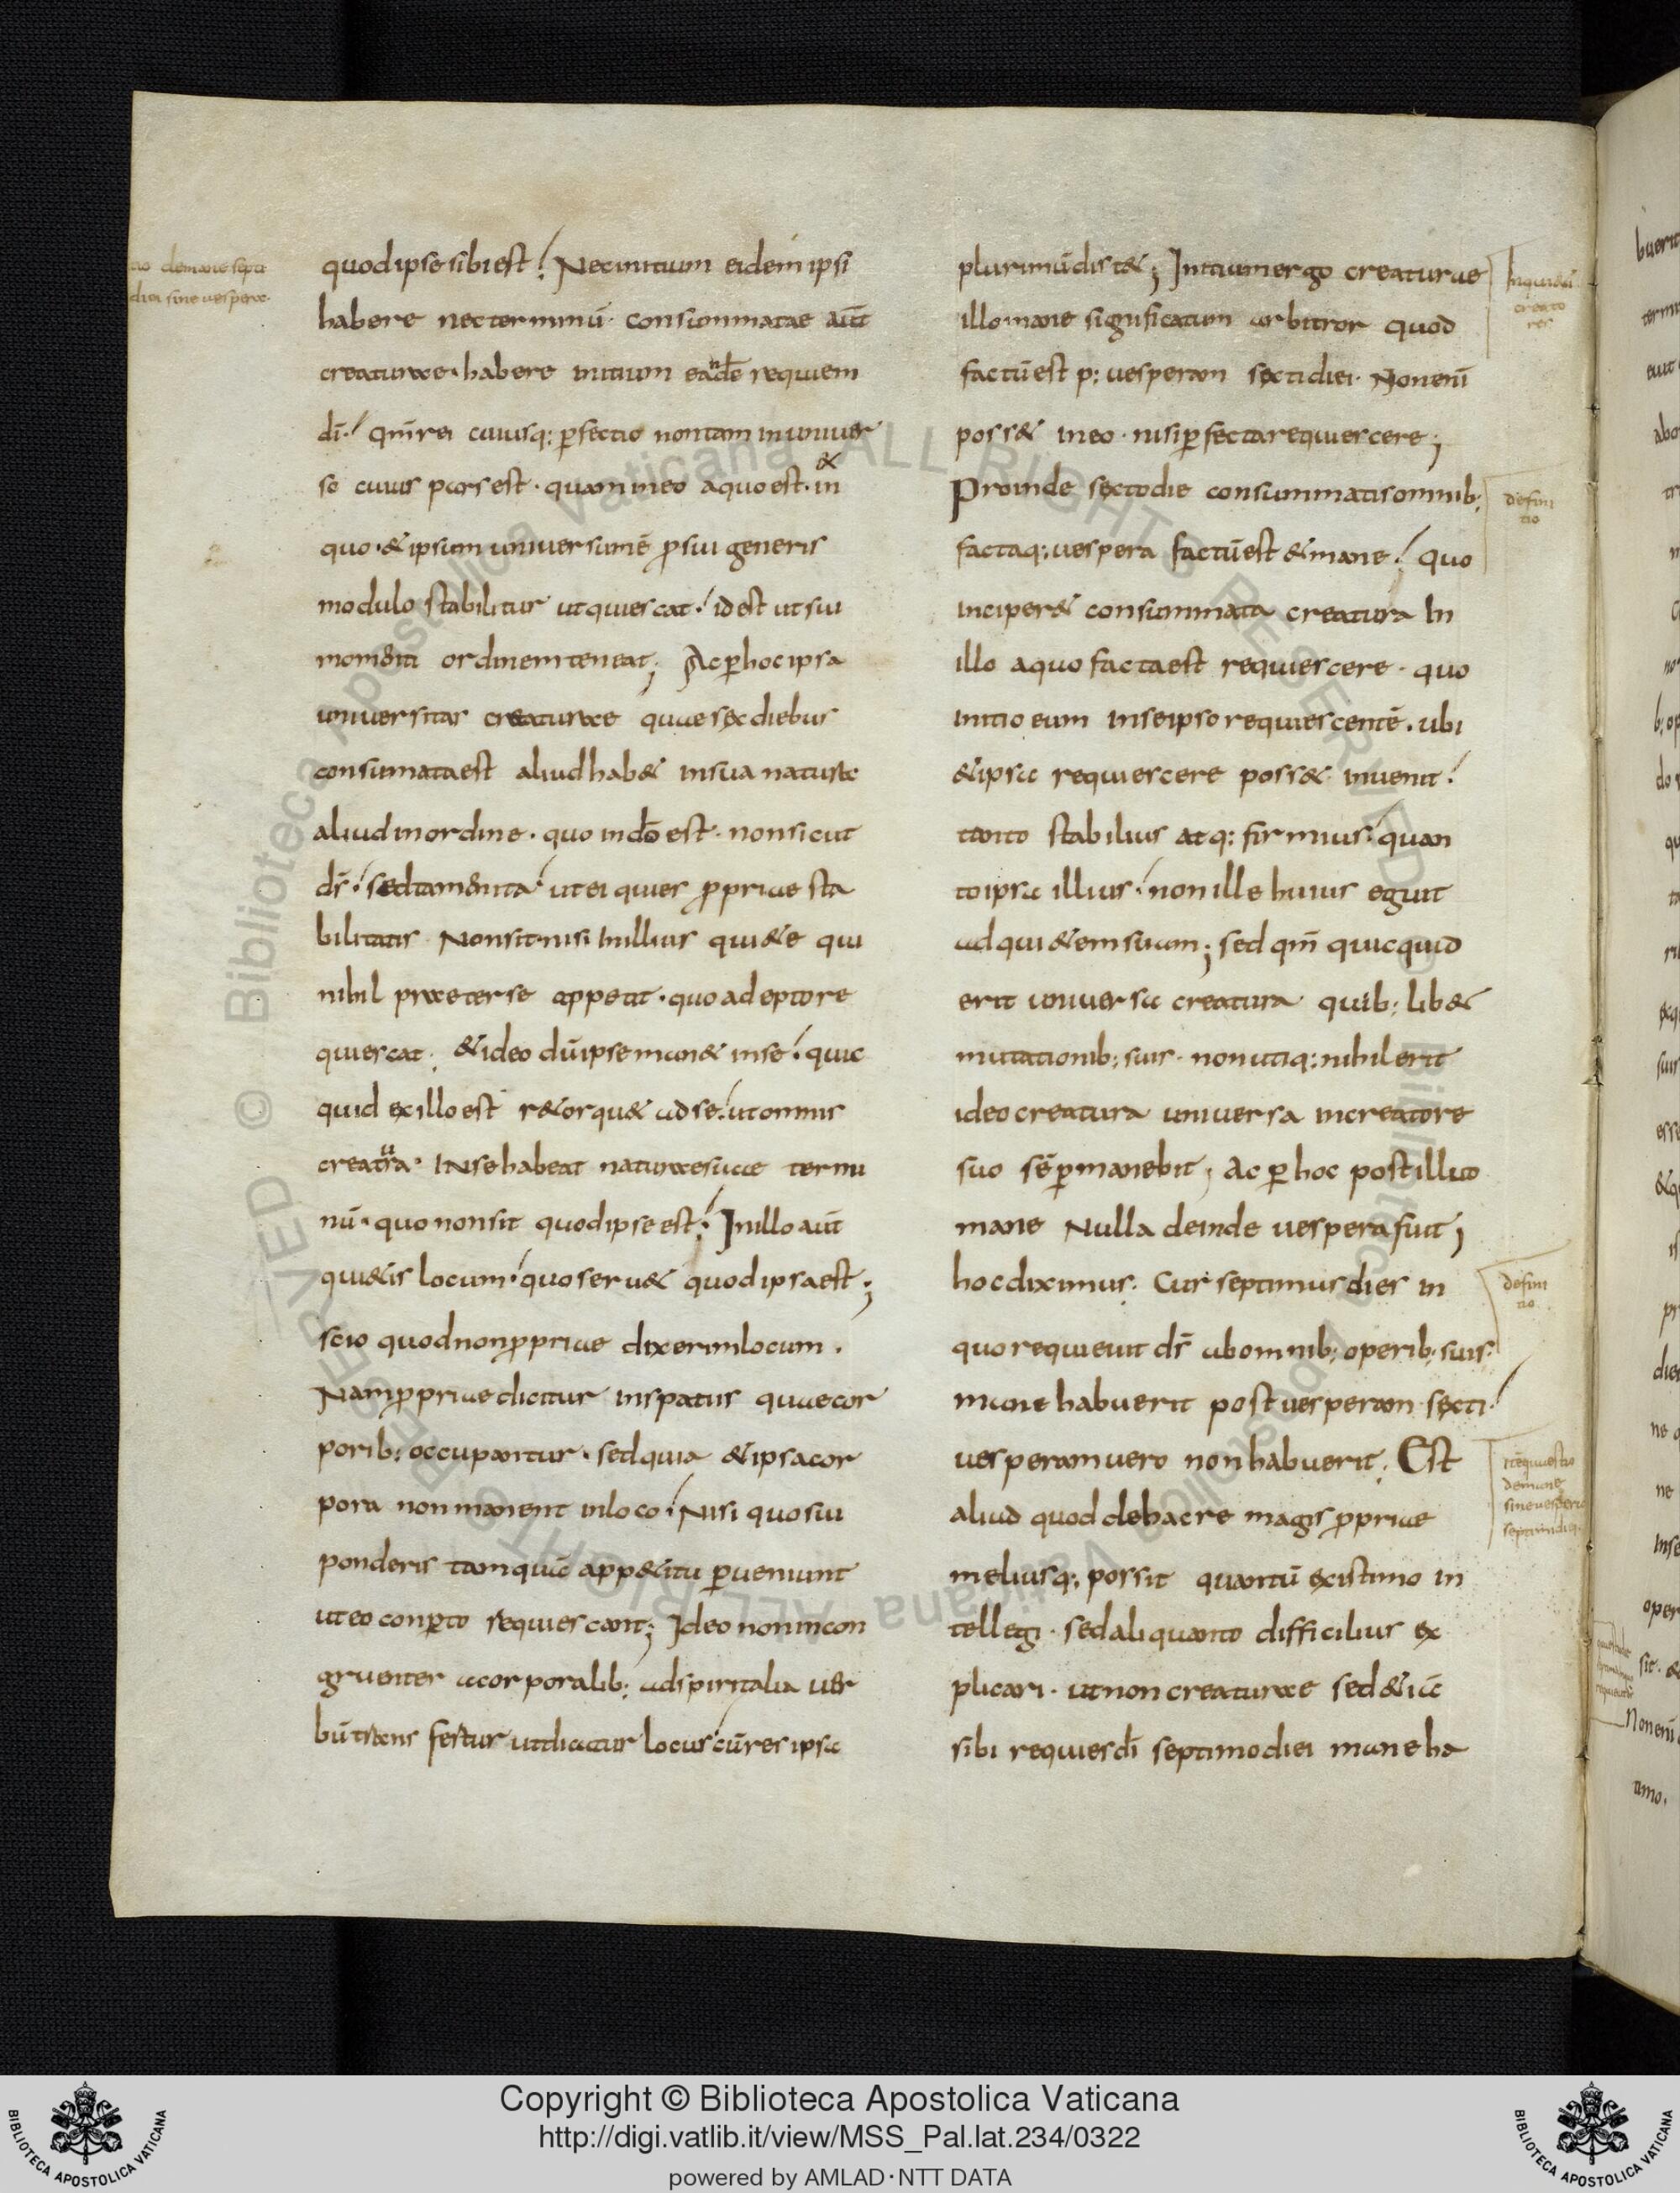 quod ipse sibi est. Nec initium eidem ipsi
habere nec terminū. consummatae aūt
creaturae. habere initium eandē requiem
dī. qm̄ rei cuiusq; ꝑfectio non tam in univer
so cuius pars est. quam in eo a quo est. & in
quo. & ipsum universum ē ꝓ sui generis
modulo stabilitur ut quiescat. id est ut sui
momenti ordinem teneat; Ac ꝑ hoc ipsa
universitas creaturae quae sex diebus
consumata est aliud hab& in sua natura
aliud in ordine. quo in dō est. non sicut
ds̄. sed tamen ita. ut ei quies ꝓpriae sta
bilitatis Non sit nisi In illius qui&e qui
nihil praeter se appetit. quo adepto re
quiescat. & ideo dū ipse man& in se. quic
quid ex illo est r&orqu& ad se. ut omnis
creatura. IN se habeat naturae suae termi
nū. quo non sit quod ipse est. In illo aūt
qui&is locum. quo serv& quod ipsa est;
scio quod non ꝓpriae dixerim locum.
Nam ꝓpriae dicitur in spatiis quae cor
porib; occupantur. sed quia & ipsa cor
pora non manent in loco. Nisi quo sui
ponderis tamquā app&itu ꝑveniunt
ut eo conꝑto requiescant; Ideo non incon
gruenter a corporalib; ad spiritalia ver
bū transfertur ut dicatur locus cū res ipsa
plurimū dist&; Initium ergo creaturae
illo mane significatum arbitror quod
factū est p; vesperam sexti diei. Non enī
poss& in eo. nisi ꝑfecta requiescere;
Proinde sexto die consummatis omnib;
factaq; vespera factū est & mane. quo
inciper& consummata creatura In
illo a quo facta est requiescere. quo
initio eum in se ipso requiescentē. ubi
& ipsa requiescere poss& invenit.
tanto stabilius atq; firmius. quan
to ipsa illius. non ille huius eguit
ad qui&em suam; sed qm̄ quicquid
erit universa creatura quib; lib&
mutationib; suis. non utiq; nihil erit
ideo creatura universa in creatore
suo sēꝑ manebit; Ac ꝑ hoc post illud
mane Nulla deinde vespera fuit;
hoc diximus. Cur septimus dies in
quo requievit ds̄ ab omnib; operib; suis.
mane habuerit post vesperam sexti.
vesperam vero non habuerit. Est
aliud quod de hac re magis ꝓpriae
meliusq; possit quantū existimo in
tellegi. sed aliquanto difficilius ex
plicari. ut non creaturae sed & iā
sibi requies dī septimo diei mane ha
defini
tio
defini
tio
Copyright © Biblioteca Apostolica Vaticana
http://digi.vatlib.it/view/MSS_Pal.lat.234/0322
powered by AMLAD·NTT DATA
BIBLIOTECA APOSTOLICA VATICANA
BIBLIOTECA APOSTOLICA VATICANA